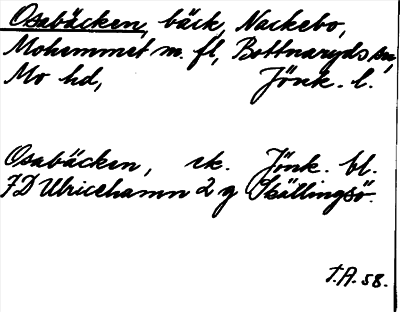 Osabäcken, bäck, Nackebo,
Mohemmet m. fl., Bottnaryds sn,
Mo hd, Jönk. l.
Osabäcken, ek. Jönk. bl.
7D Ulricehamn 2 g Skällingsö.
T.A. 58.